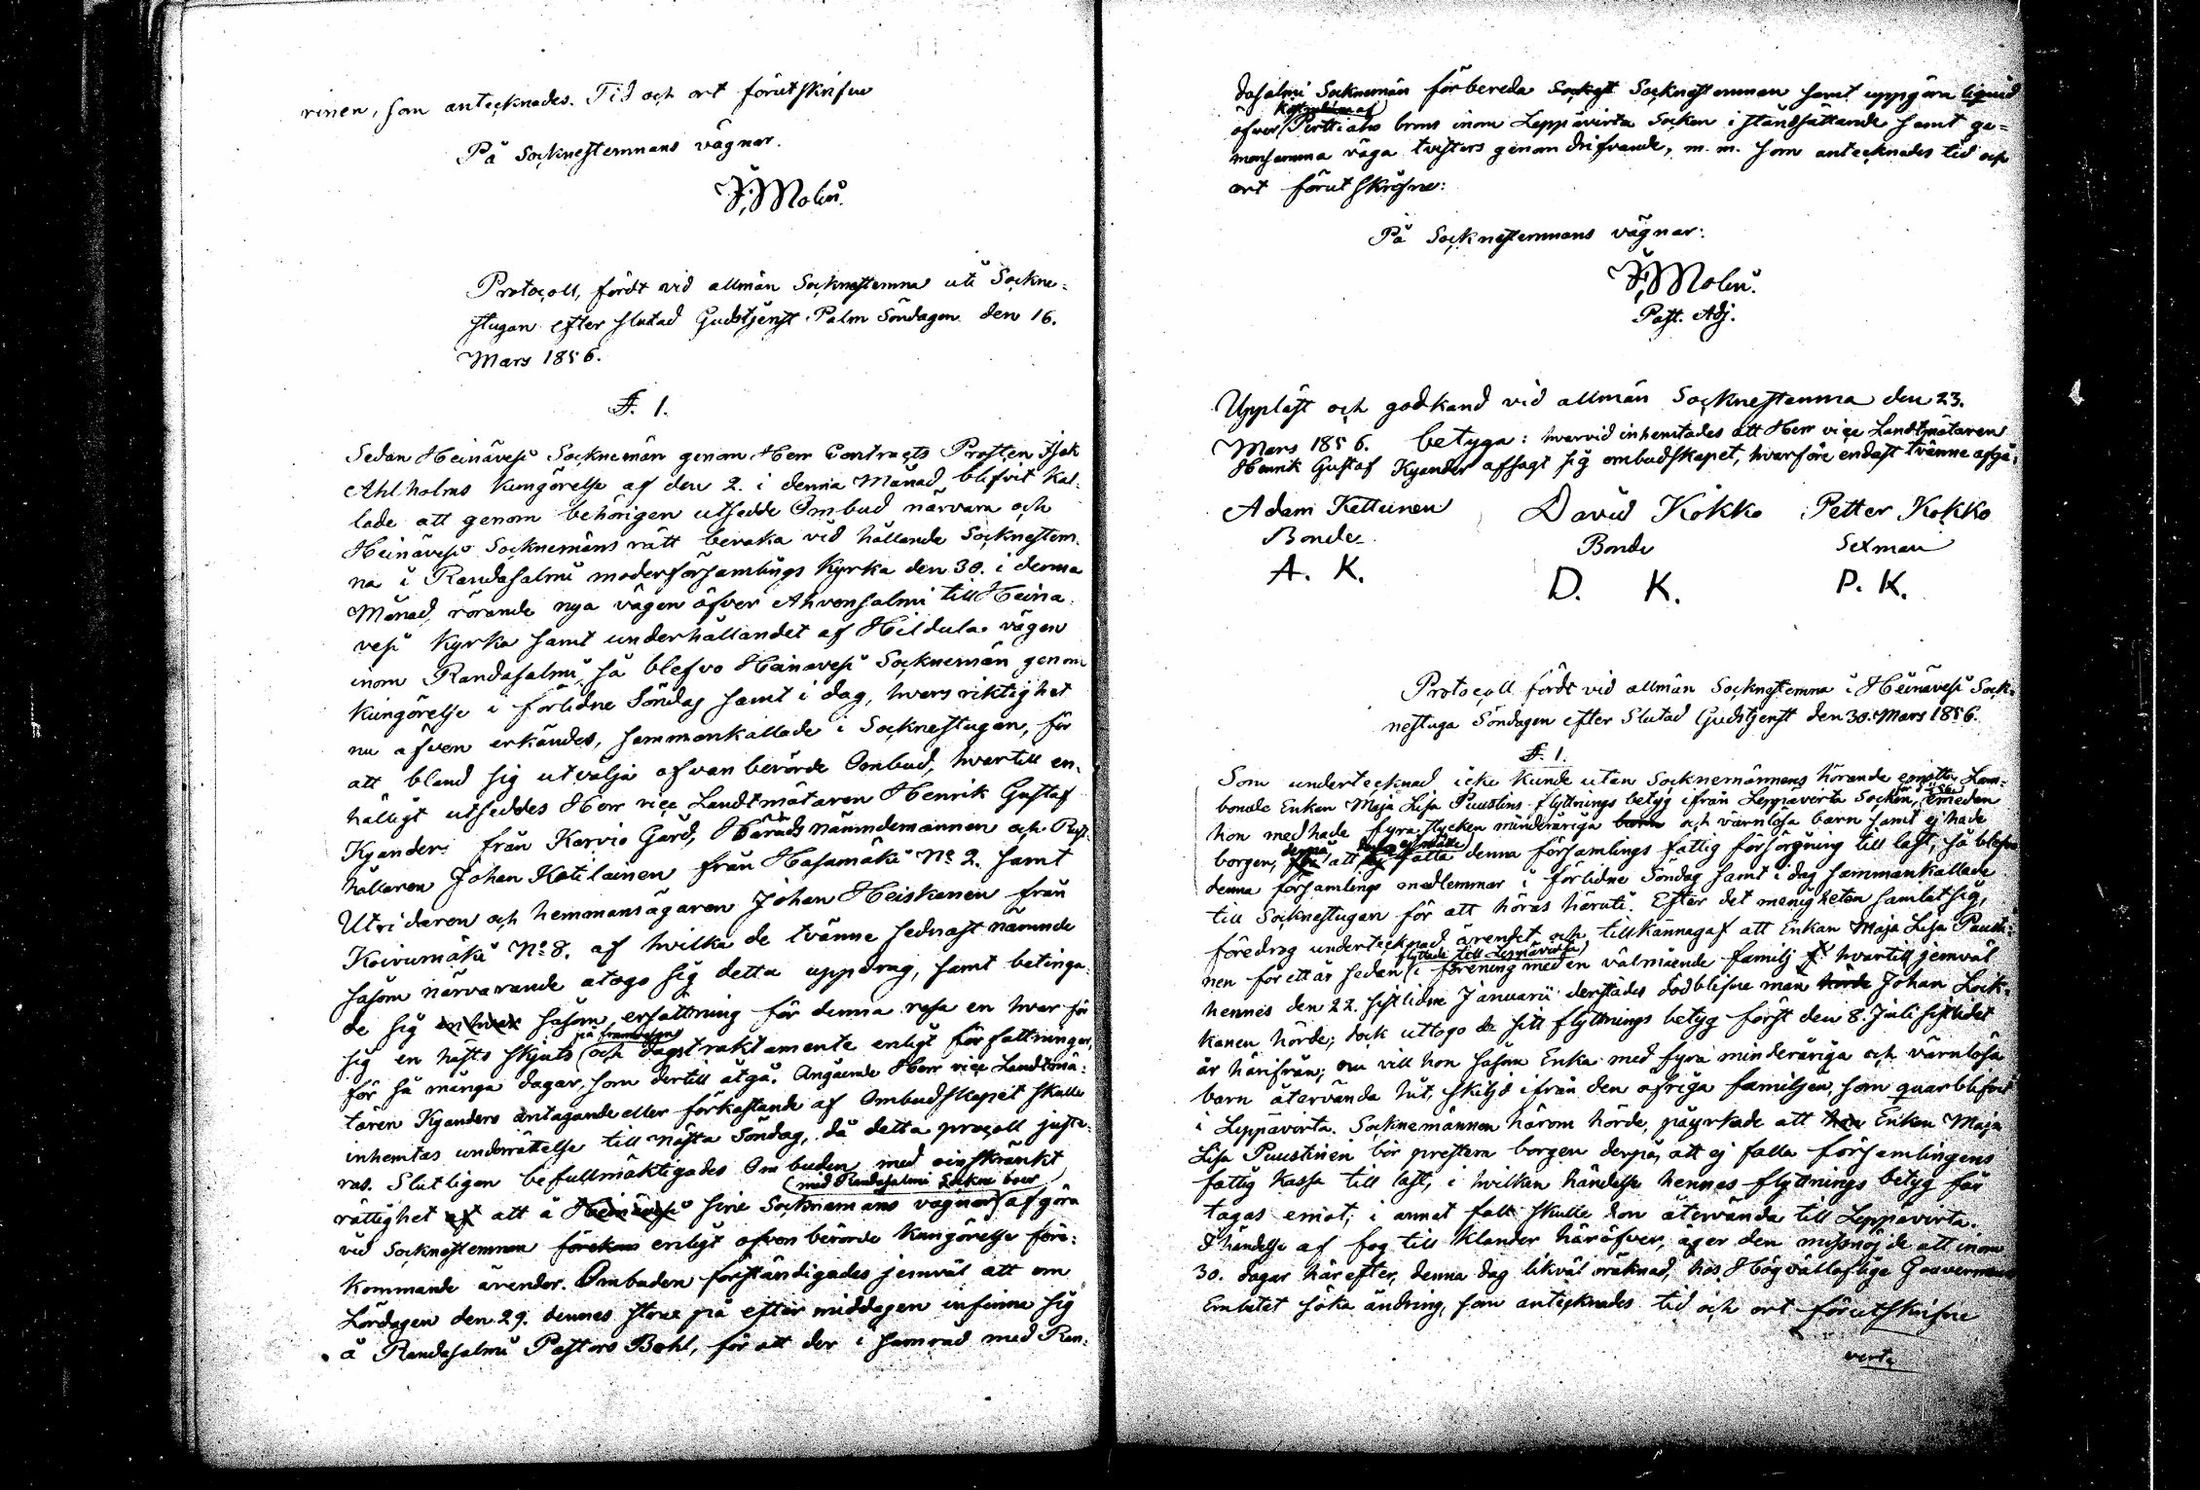 rinen, som antecknades. Tid och ort förutskrifne
På Socknestemmans vägnar.
J. Molin.
Protocoll, fördt vid allmän Sockenstemma uti Sockne-
stugan efter slutad Gudstjenst Palm Söndagen den 16.
Mars 1856.
§. 1.
Sedan Heinävesi Socknemän genom Herr Contracts Prosten Isak
Ahlholms Kungörelse af den 2. i denna Månad blifvit kal-
lade att genom behörigen utsedde Ombud närvara och
Heinävesi Socknemäns rätt bevaka vid hållande Socknestem-
na i Randasalmi moderförsamlings Kyrka den 30. i denna
Månad, rörande nya vägen öfver Ahvensalmi till Heinä-
vesi Kyrka samt underhållandet af Hildula vägen
inom Randasalmi, så blefvo Heinävesi Socknemän genom
Kungörelse i förlidne Söndag samt i dag, hvars riktighet
nu äfven erkändes, sammankallade i Socknestugan, för
att bland sig utvälja ofvan berörde Ombud, hvartill en-
hälligt utseddes Herr vice Landtmätaren Henrik Gustaf
Kyander från Karvio Gård, Härads nämndemannen och Gäst-
hållaren Johan Katilainen från Hasumäki No 2. samt
Utridaren och hemmansägaren Johan Heiskanen från
Koirumäki No 8. af hvilka de tvänne sednast nämnde
såsom närvarande åtogo sig detta uppdrag, samt betinga-
de sig en hvar såsom ersättning för denna resa en hvar för
sig en hästs skjuts och dagstraktamente enligt författningar,
för så många dagar, som dertill åtgå. Angående Herr vice Landtmä-
taren Kyanders antagande eller förkastande af Ombudskapet skulle
inhemtas underrättelse till nästa Söndag, då detta procoll juste-
ras. Slutligen befullmäktigades Ombuden med oinskränkt
(med Randasalmi Sockne boer
rättighet af att å Heinävesi sine Socknemäns vägnar) afgöra
vid Socknestemman förekom enligt ofvan berörde Kungörelse före-
kommande ärender. Ombuden förständigades jemväl att om
Lördagen den 29. dennes straxt på efter middagen infinna sig
å Randasalmi Pastors Bohl, för att der i samråd med Ran-
dasalmi Socknemän förbereda Sockne Socknestemman samt uppgöra liquid
öfver Perttialas brons inom Leppävirta Socken i ståndsättande samt ge-
mensamma väga tvisters genomdrifvande, m. m. som antecknades tid och
ort förutskrifne:
På Socknestemmans vägnar:
J. Molin.
Past. Adj.
Uppläst och godkänd vid allmän Socknestemma den 23.
Mars 1856. betyga: hvarvid inhemtades att Herr vice Landtmätaren
Henrik Gustaf Kyander afsagt sig ombudskapet, hvarföre endast tvänne afgå:
Adam Kettunen David Kokko Petter Kokko
Bonde Bonde Sexman
A. K. D. K. P. K.
Protocoll fördt vid allmän Socknestemma i Heinävesi Sock-
nestuga Söndagen efter Slutad Gudstjenst den 30. Mars 1856.
§. 1.
Som undertecknad icke kunde utan Socknemännens hörande emotta Lam-
bonde Enkan Maja Lisa Puustins flyttnings betyg ifrån Leppävirta Socken, emedan
hon medhade fyra stycken minderåriga barn och värnlösa barn samt ej hade
borgen, derpå att ej falla denna församlings fattig försörgning till last, så blefvo
denna församlings medlemmar i förlidne Söndag samt i dag sammankallade
till Socknestugan för att höras häruti. Efter det menigheten samlat sig,
föredrog undertecknad ärendet och tillkännagaf att Enkan Maja Lisa Puusti-
flyttade till Leppävirta
nen för ett år sedan i förening med en välmående familj hvartill jemväl
hennes den 22. sistlidne Januarii derstädes dödblifne man hörde Johan Lock-
kanen hörde; dock uttogo de sitt flyttnings betyg först den 8. Juli sistlidet
år härifrån; nu vill hon såsom Enka med fyra minderåriga och värnlösa
barn återvända hit, skiljd ifrån den öfriga familjen, som quarblifvit
i Leppävirta. Socknemännen härom hörde, påyrkade att hon Enkan Maja
Lisa Puustinen bör prestera borgen derpå, att ej falla församlingens
fattig Kassa till last, i hvilken händelse hennes flyttnings betyg får
tagas emot; i annat fall skulle hon återvända till Leppävirta.
I händelse af fog till klander häröfver, äger den missnöjde att inom
30. dagar härefter, denna dag likväl oräknad, hos Högvälloflige Gouvernements
Embetet söka ändring, som antecknades tid och ort förutskrifne
verte